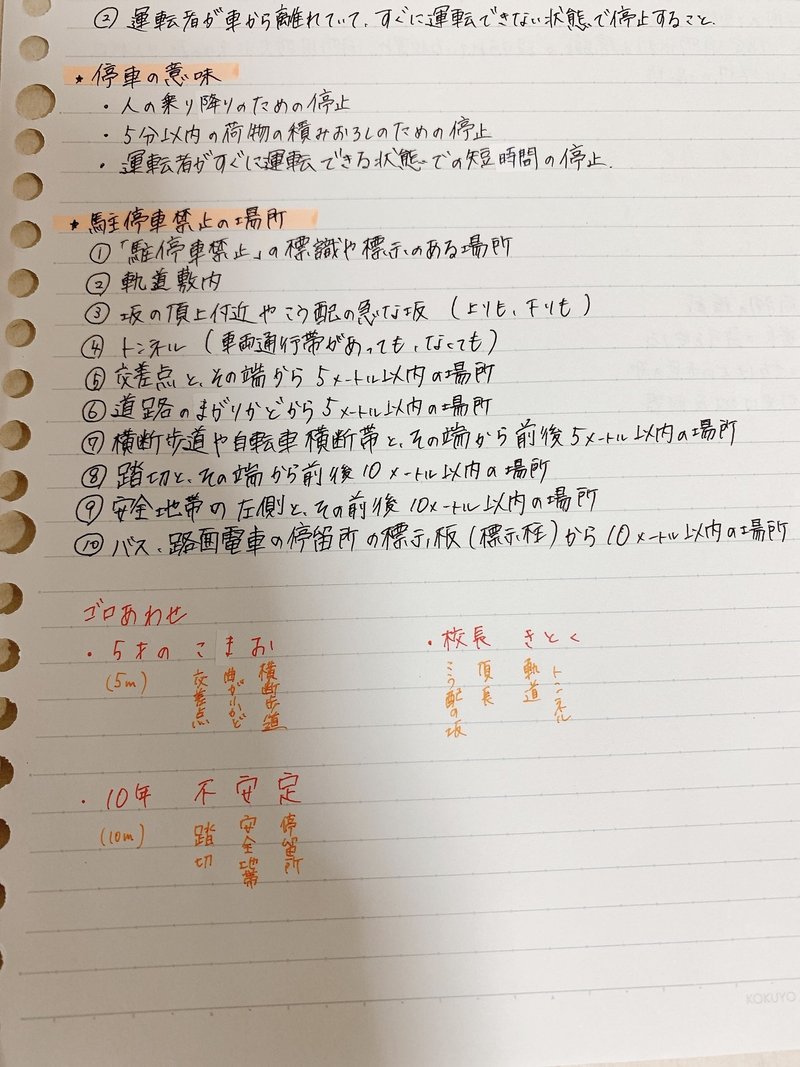 ② 運転者が車から離れていて、すぐに運転できない状態で停止すること.
★ 停車の意味
・人の乗り降りのための停止
・5分以内の荷物の積みおろしのための停止
・運転者がすぐに運転できる状態での短時間の停止.
★ 駐停車禁止の場所
①「駐停車禁止」の標識や標示のある場所
② 軌道敷内
③ 坂の頂上付近やこう配の急な坂(上りも、下りも)
④ トンネル(車両通行帯があっても、なくても)
⑤ 交差点と、その端から5メートル以内の場所
⑥ 道路のまがりかどから5メートル以内の場所
⑦ 横断歩道や自転車横断帯と、その端から前後5メートル以内の場所
⑧ 踏切と、その端から前後10メートル以内の場所
⑨ 安全地帯の左側と、その前後10メートル以内の場所
⑩ バス、路面電車の停留所の標示板(標示柱)から10メートル以内の場所
ゴロあわせ
・5才の こ ま お
(5m) 交差点 曲がりかど 横断歩道
・校長 きとく
こう配の坂 頂長 軌道 トンネル
・10年 不 安 定
(10m) 踏切 安全地帯 停留所
KOKUYO